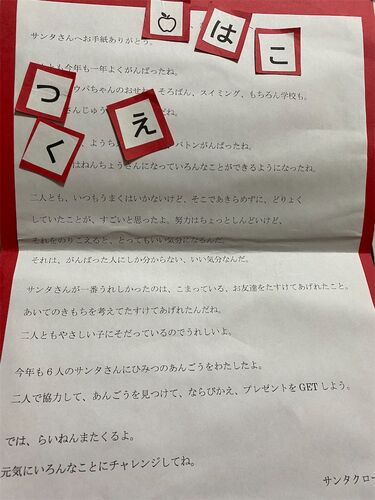 サンタさんへお手紙ありがとう。
は
こ
つ
え
く
も今年も一年よくがんばったね。
ウパちゃんのおせわ、そろばん、スイミング、もちろん学校も。
バトンがんばったね。
はねんちょうさんになっていろんなことができるようになったね。
二人とも、いつもうまくはいかないけど、そこであきらめずに、どりょく
していたことが、すごいと思ったよ。努力はちょっとしんどいけど、
それをのりこえると、とってもいい気分になるんだ。
それは、がんばった人にしか分からない、いい気分なんだ。
サンタさんが一番うれしかったのは、こまっている、お友達をたすけてあげれたこと。
あいてのきもちを考えてたすけてあげれたんだね。
二人ともやさしい子にそだっているのでうれしいよ。
今年も6人のサンタさんにひみつのあんごうをわたしたよ。
二人で協力して、あんごうを見つけて、ならびかえ、プレゼントをGETしよう。
では、らいねんまたくるよ。
元気にいろんなことにチャレンジしてね。
サンタクロー